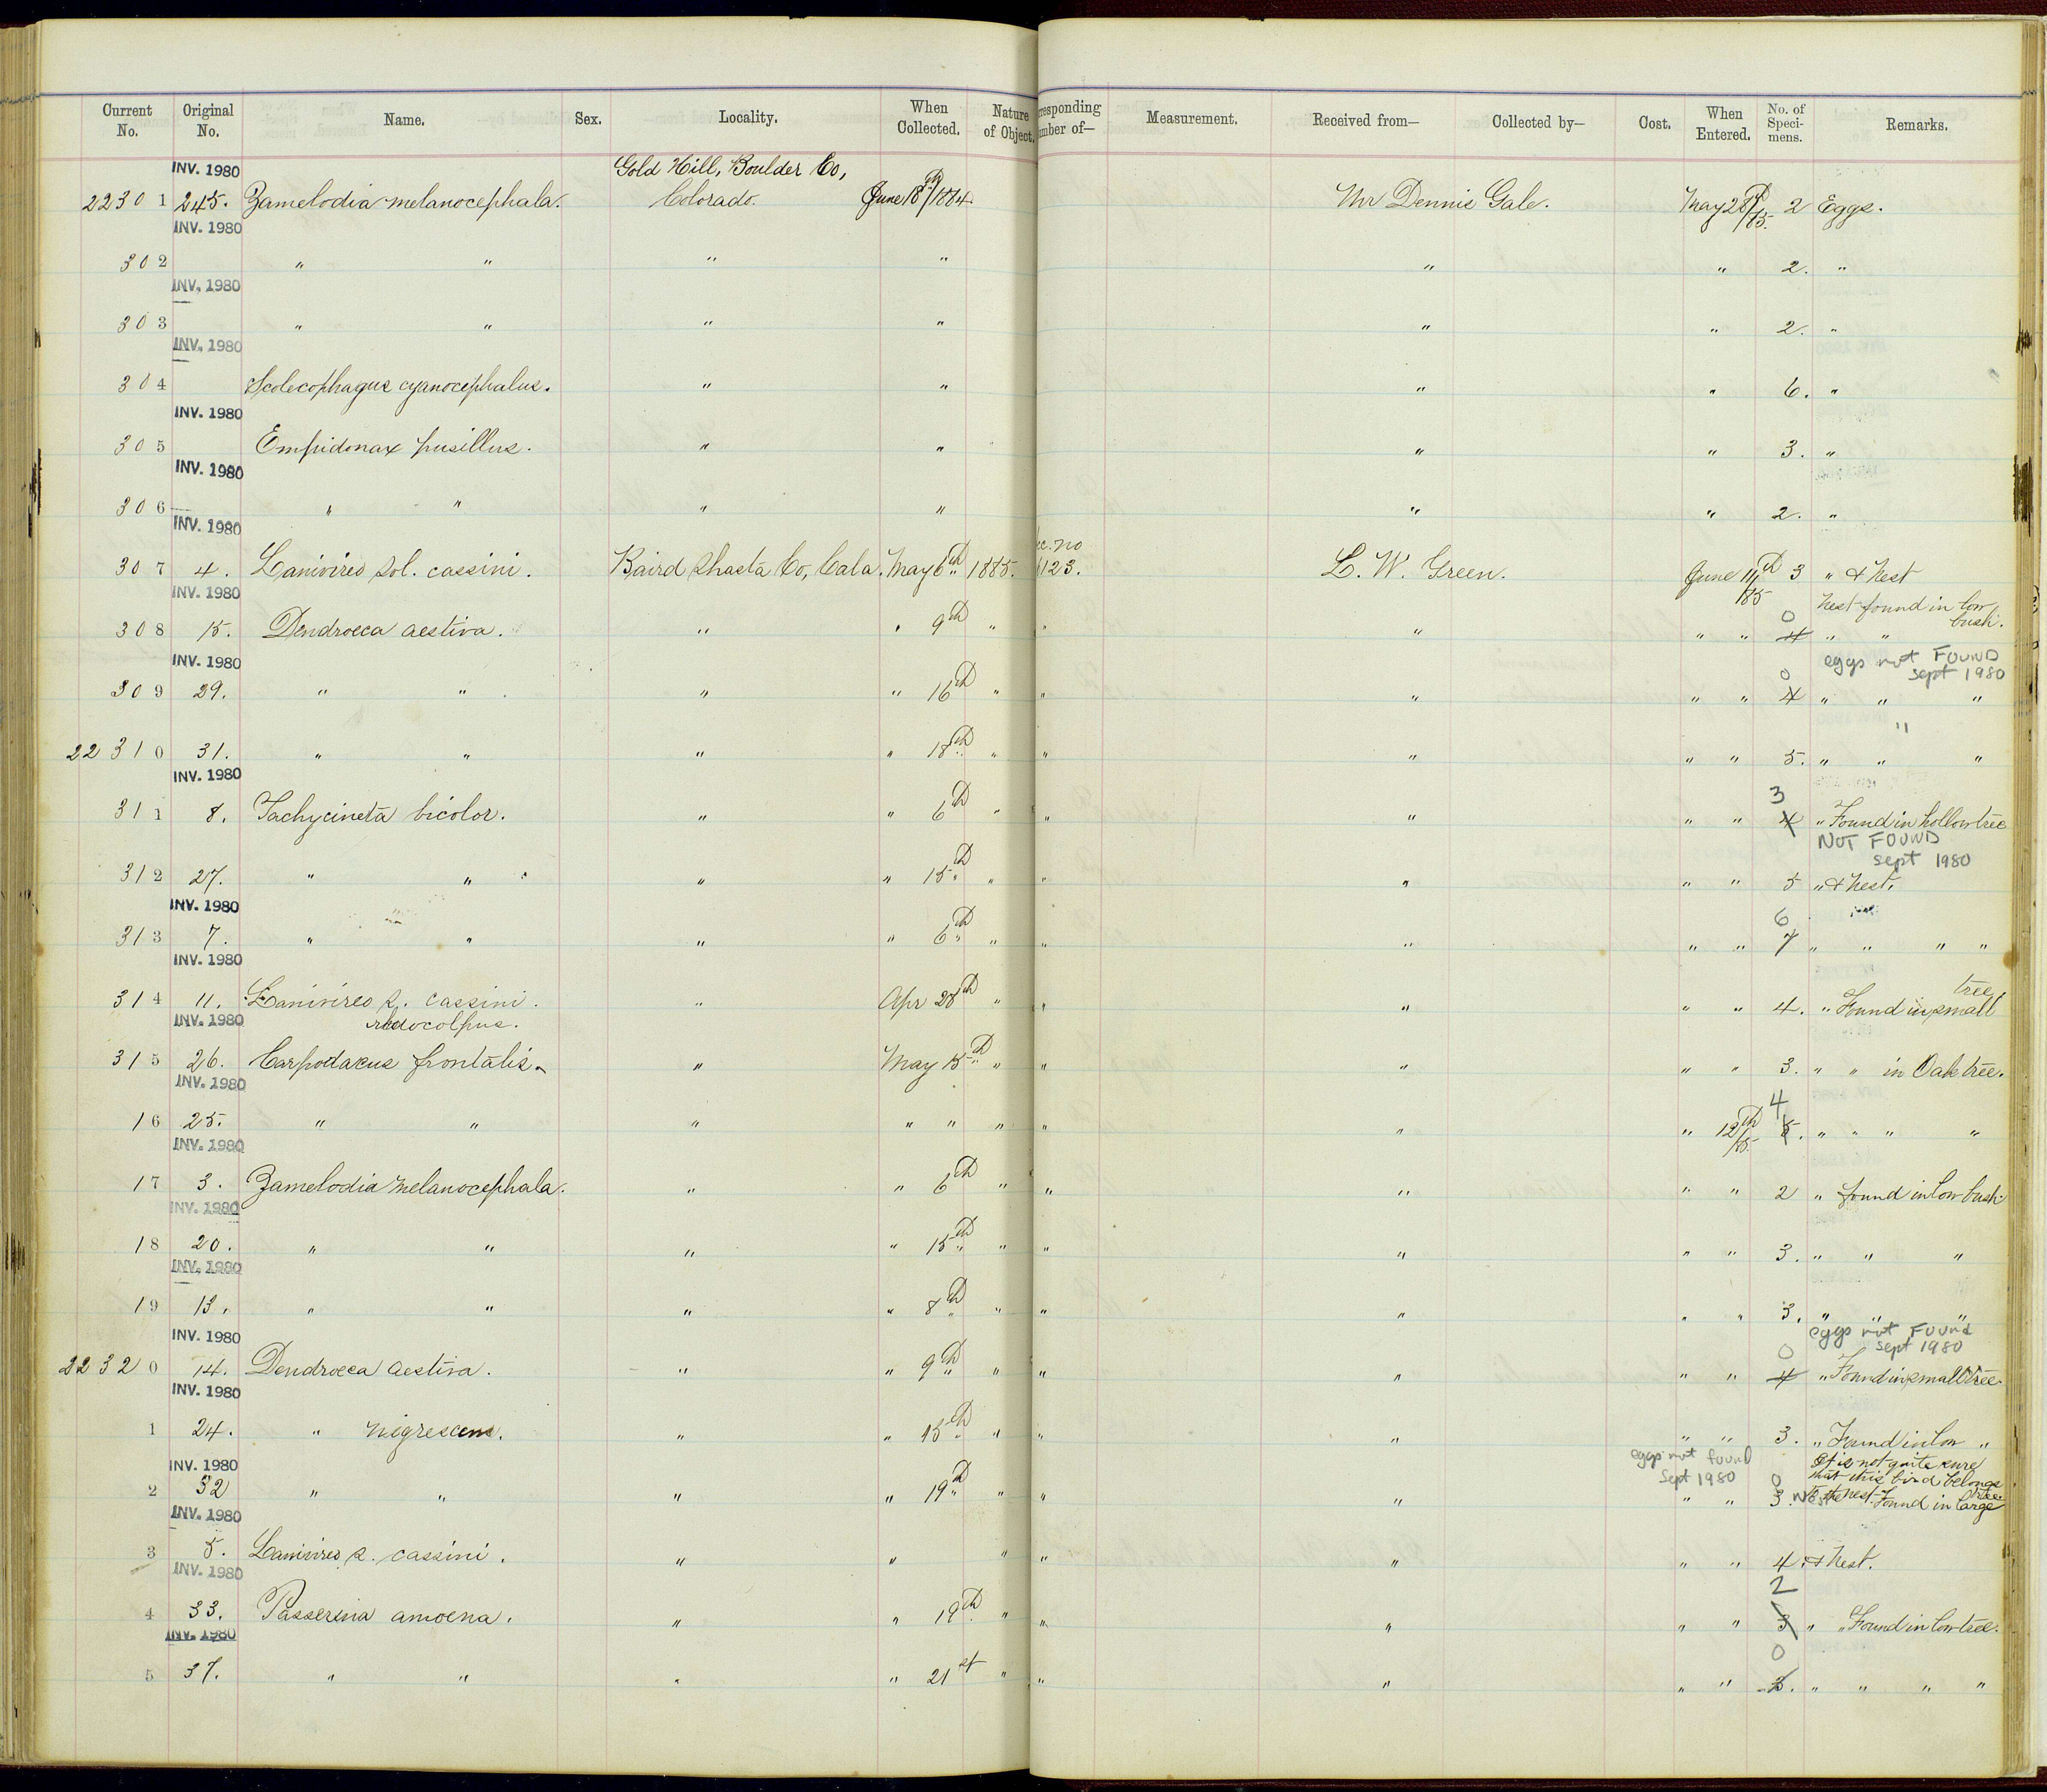 Current No. Original No. Name. Sex. Locality. When Collected. Nature of Object. rresponding umber of— Measurement. Received from— Collected by— Cost. When Entered. No. of Speci- mens. Remarks.
INV. 1980 Gold Hill, Boulder Co,
22301 245. Zamelodia melanocephala. Colorado. June 18th/1884. Mr Dennis Gale. May 28th/85. 2 Eggs.
INV. 1980
302 " " " " " " 2. "
INV. 1980
303 " " " " " " 2. "
INV. 1980
304 Scolecophagus cyanocephalus. " " " " 6. "
INV. 1980
305 Empidonax pusillus. " " " " 3. "
INV. 1980
306 " " " " " " 2. "
INV. 1980 ec. no
307 4. Lanivireo sol. cassini. Baird Shasta Co, Cala. May 6th 1885. 123. L. W. Green. June 11th/85 3 " & Nest
INV. 1980 Nest found in low bush.
308 15. Dendroeca aestiva. " " 9th " " " " " 0 4 " "
INV. 1980 eggs not FOUND sept 1980
309 29. " " " " 16th " " " " " 0 4 " " "
"
22310 31. " " " " 18th " " " " " 5. " " "
INV. 1980
311 8. Tachycineta bicolor. " " 6th " " " " " 3 4 " Found in hollow tree
NOT FOUND sept 1980
312 27. " " " " 15th " " " " " 5 " & Nest.
INV. 1980
313 7. " " " " 6th " " " " " 6 7 " " " "
INV. 1980
314 11. Lanivireo s. cassini. " Apr 28th " " " " " 4. " Found in small tree.
INV. 1980 rhodocolpus.
315 26. Carpodacus frontalis. " May 15th " " " " " 3. " " in Oak tree.
INV. 1980
16 25. " " " " " " " " " 12th/85. 4 5. " " " "
INV. 1980
17 3. Zamelodia melanocephala. " " 6th " " " " " 2 " found in low bush
INV. 1980
18 20. " " " " 15th " " " " " 3. " " "
INV. 1980
19 13. " " " " 8th " " " " " 3. " " "
INV. 1980 eggs not Found sept 1980
22320 14. Dendroeca aestiva. " " 9th " " " " " 0 4 " Found in small tree.
INV. 1980
1 24. " nigrescens. " " 15th " " " " " 3. " Found in low "
INV. 1980 eggs not found Sept 1980 It is not quite sure that this bird belongs
2 32 " " " " 19th " " " " " 0 3. Nest to the nest. Found in large tree.
INV. 1980
3 5. Lanivireo s. cassini. " " " " " " " 4. & Nest.
INV. 1980
4 33. Passerina amoena. " " 19th " " " " " 2 3 " " Found in low tree.
INV. 1980
5 37. " " " " 21st " " " " " 0 3. " " " "